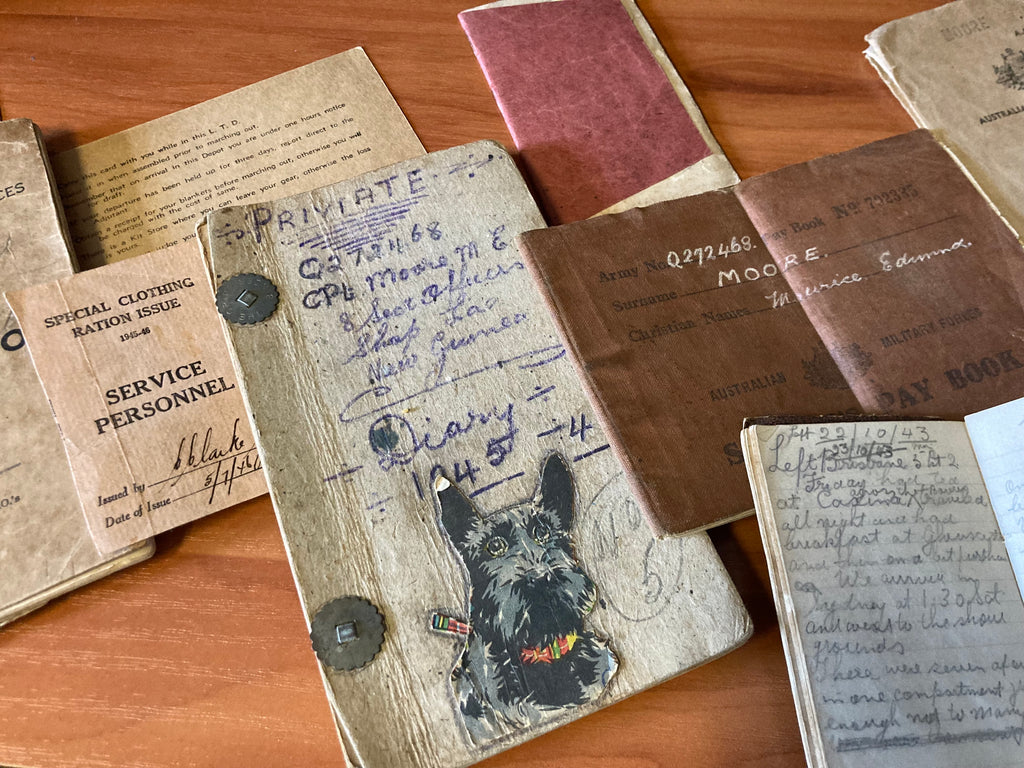 this card with you while in this L. T. D.
in when assembled prior to marching out.
that on arrival in this Depot you are under one hours notice
draft.
departure has been held up for three days, report direct to the
Adjutant.
a receipt for your blankets before marching out, otherwise you will
be charged with the cost of same.
is a Kit Store where you can leave your gear, otherwise the loss
yours.
SPECIAL CLOTHING
RATION ISSUE
1945-46
SERVICE
PERSONNEL
Issued by
Date of Issue 5/7/46
÷ PRIVIATE ÷
Q272468
CPL Moore M E
8 Sect Officers
Shop Lae
New Guinea
÷ Diary ÷
÷ 1945 ÷ 4
No
5
Army No. Q272468. Pay Book No
Surname MOORE.
Christian Names Maurice Edmund.
AUSTRALIAN MILITARY FORCES
PAY BOOK
MOORE
AUSTRALIAN
Left 22/10/43
23/10/43
Left Brisbane 5
Friday had tea
at
all night and had
breakfast at
and then on a bit
We arrive in
Sydney at 1.30 sat
and went to the show
grounds
There were seven of us
in one compartment
enough not to many